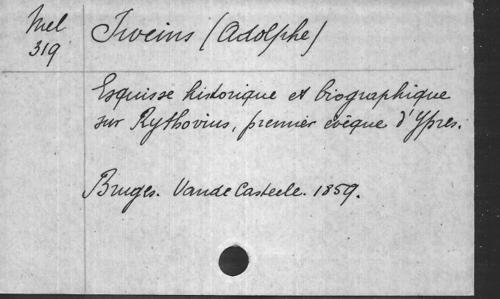 Mel
319
Iweins (Adolphe)
Esquisse historique et biographique
sur Rythovius, premier évêque d'Ypres.
Bruges. Vande Casteele. 1859.